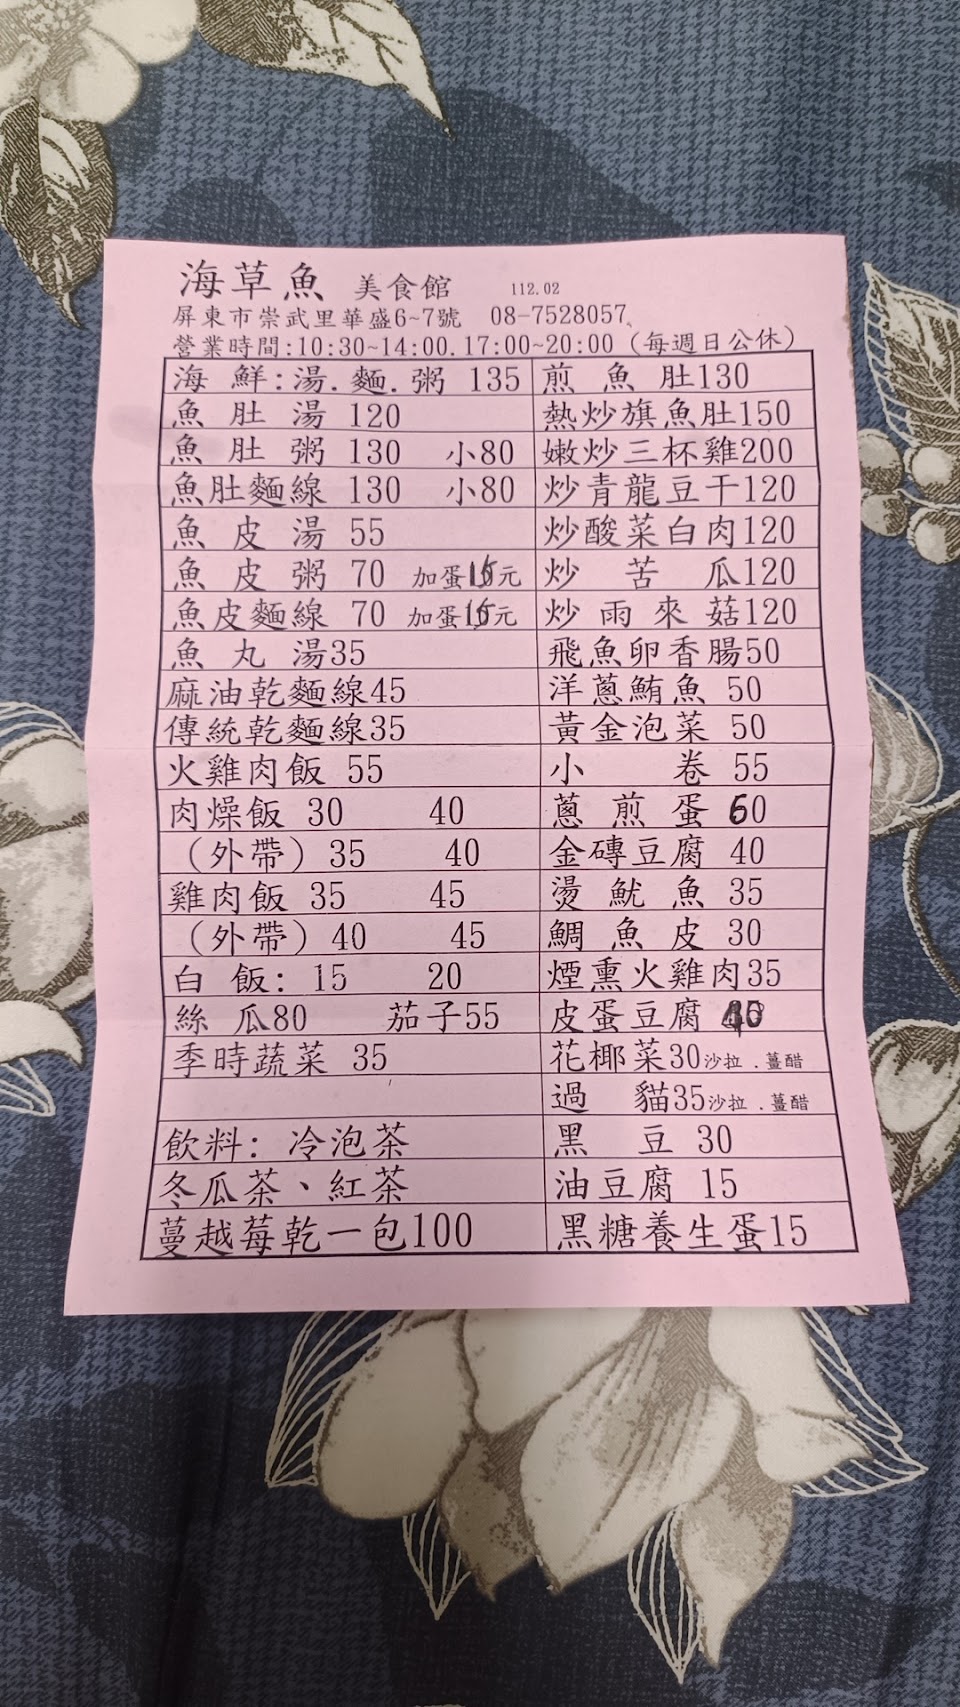 海草魚 美食館 112.02
屏東市崇武里華盛6~7號 08-7528057
營業時間:10:30~14:00.17:00~20:00 (每週日公休)
海 鮮:湯.麵.粥 135
魚 肚 湯 120
魚 肚 粥 130 小80
魚肚麵線 130 小80
魚 皮 湯 55
魚 皮 粥 70 加蛋15元
魚皮麵線 70 加蛋15元
魚 丸 湯35
麻油乾麵線45
傳統乾麵線35
火雞肉飯 55
肉燥飯 30 40
(外帶) 35 40
雞肉飯 35 45
(外帶) 40 45
白 飯: 15 20
絲 瓜80 茄子55
季時蔬菜 35
飲料: 冷泡茶
冬瓜茶、紅茶
蔓越莓乾一包100
煎 魚 肚130
熱炒旗魚肚150
嫩炒三杯雞200
炒青龍豆干120
炒酸菜白肉120
炒 苦 瓜120
炒 雨 來 菇120
飛魚卵香腸50
洋蔥鮪魚 50
黃金泡菜 50
小 卷 55
蔥 煎 蛋 60
金磚豆腐 40
燙 魷 魚 35
鯛 魚 皮 30
煙熏火雞肉35
皮蛋豆腐
花椰菜30沙拉.薑醋
過 貓35沙拉.薑醋
黑 豆 30
油豆腐 15
黑糖養生蛋15